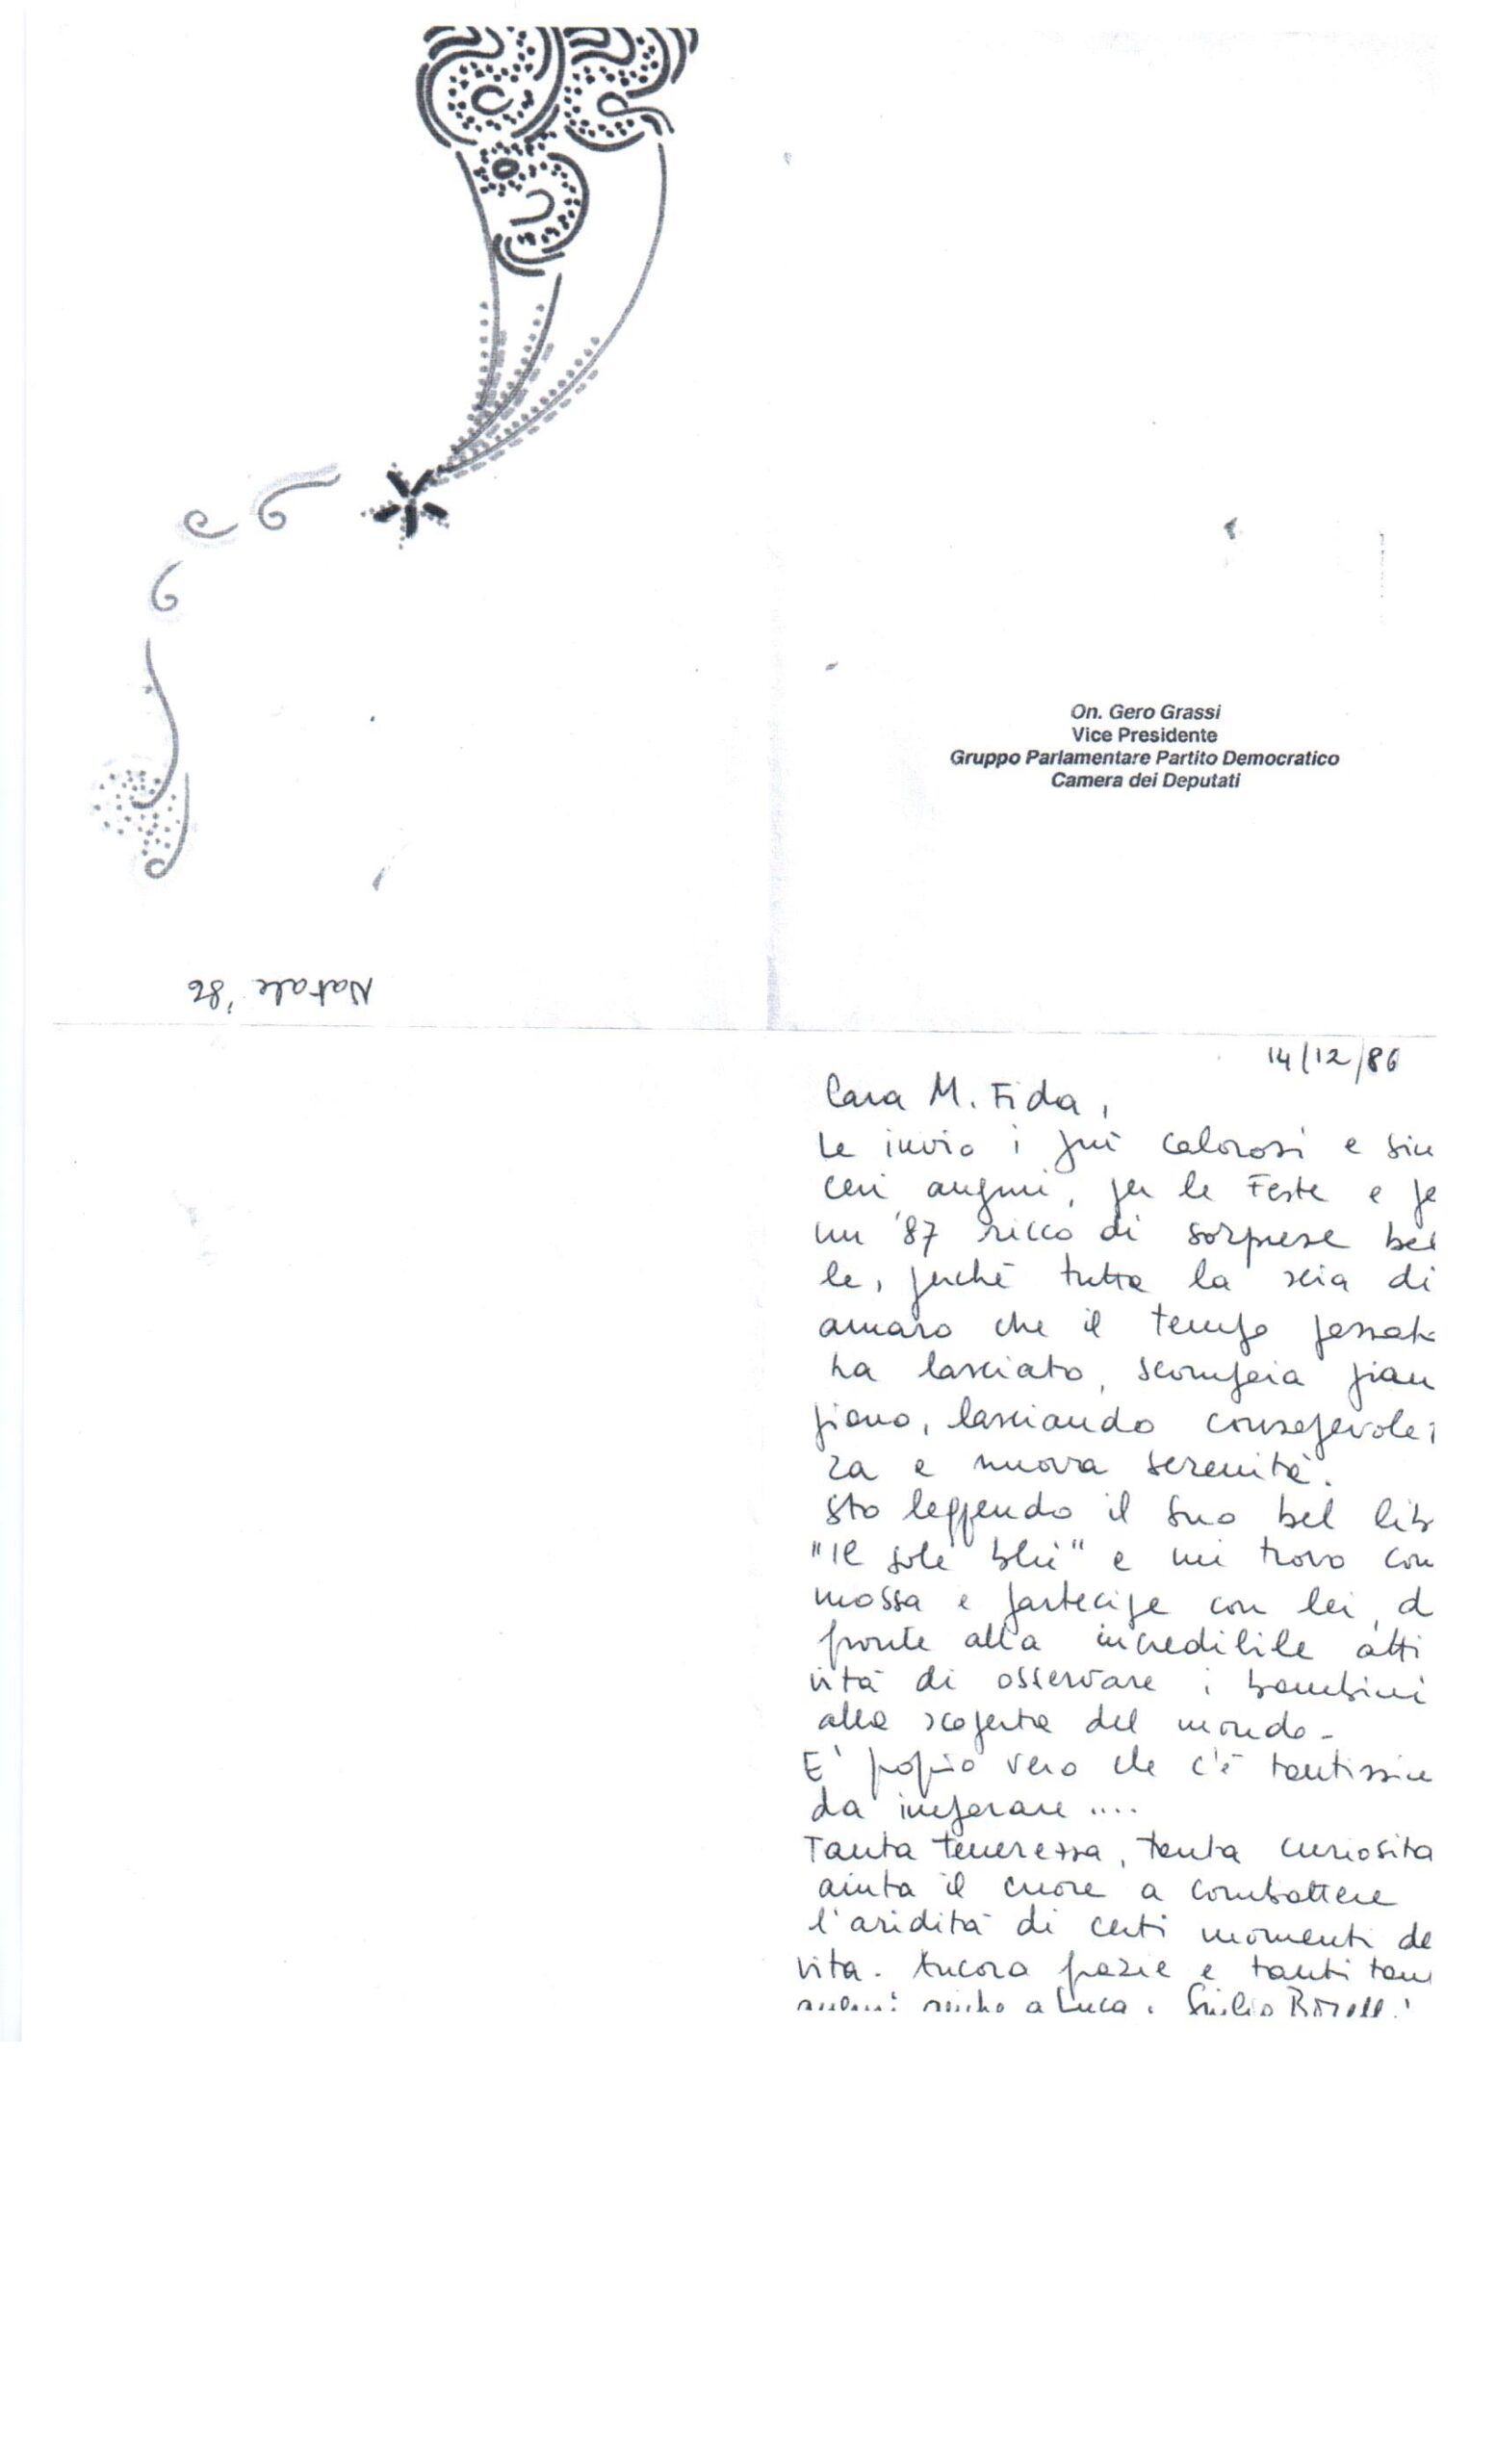 Natale '86
On. Gero Grassi
Vice Presidente
Gruppo Parlamentare Partito Democratico
Camera dei Deputati
14/12/86
Cara M. Fida,
Le invio i più calorosi e sin
ceri auguri, per le Feste e pe
un '87 ricco di sorprese bel
le, perchè tutta la scia di
amaro che il tempo passat
ha lasciato, scompaia pian
piano, lasciando consapevole
za e nuova serenità.
Sto leggendo il suo bel lib
"Il sole blù" e mi trovo com
mossa e partecipe con lei, d
fronte alla incredibile atti
vità di osservare i bambini
alla scoperta del mondo -
E' proprio vero che c'è tantissim
da imparare ....
Tanta tenerezza, tanta curiosità
aiuta il cuore a combattere
l'aridità di certi momenti de
vita. Ancora grazie e tanti tan
auguri anche a Luca.